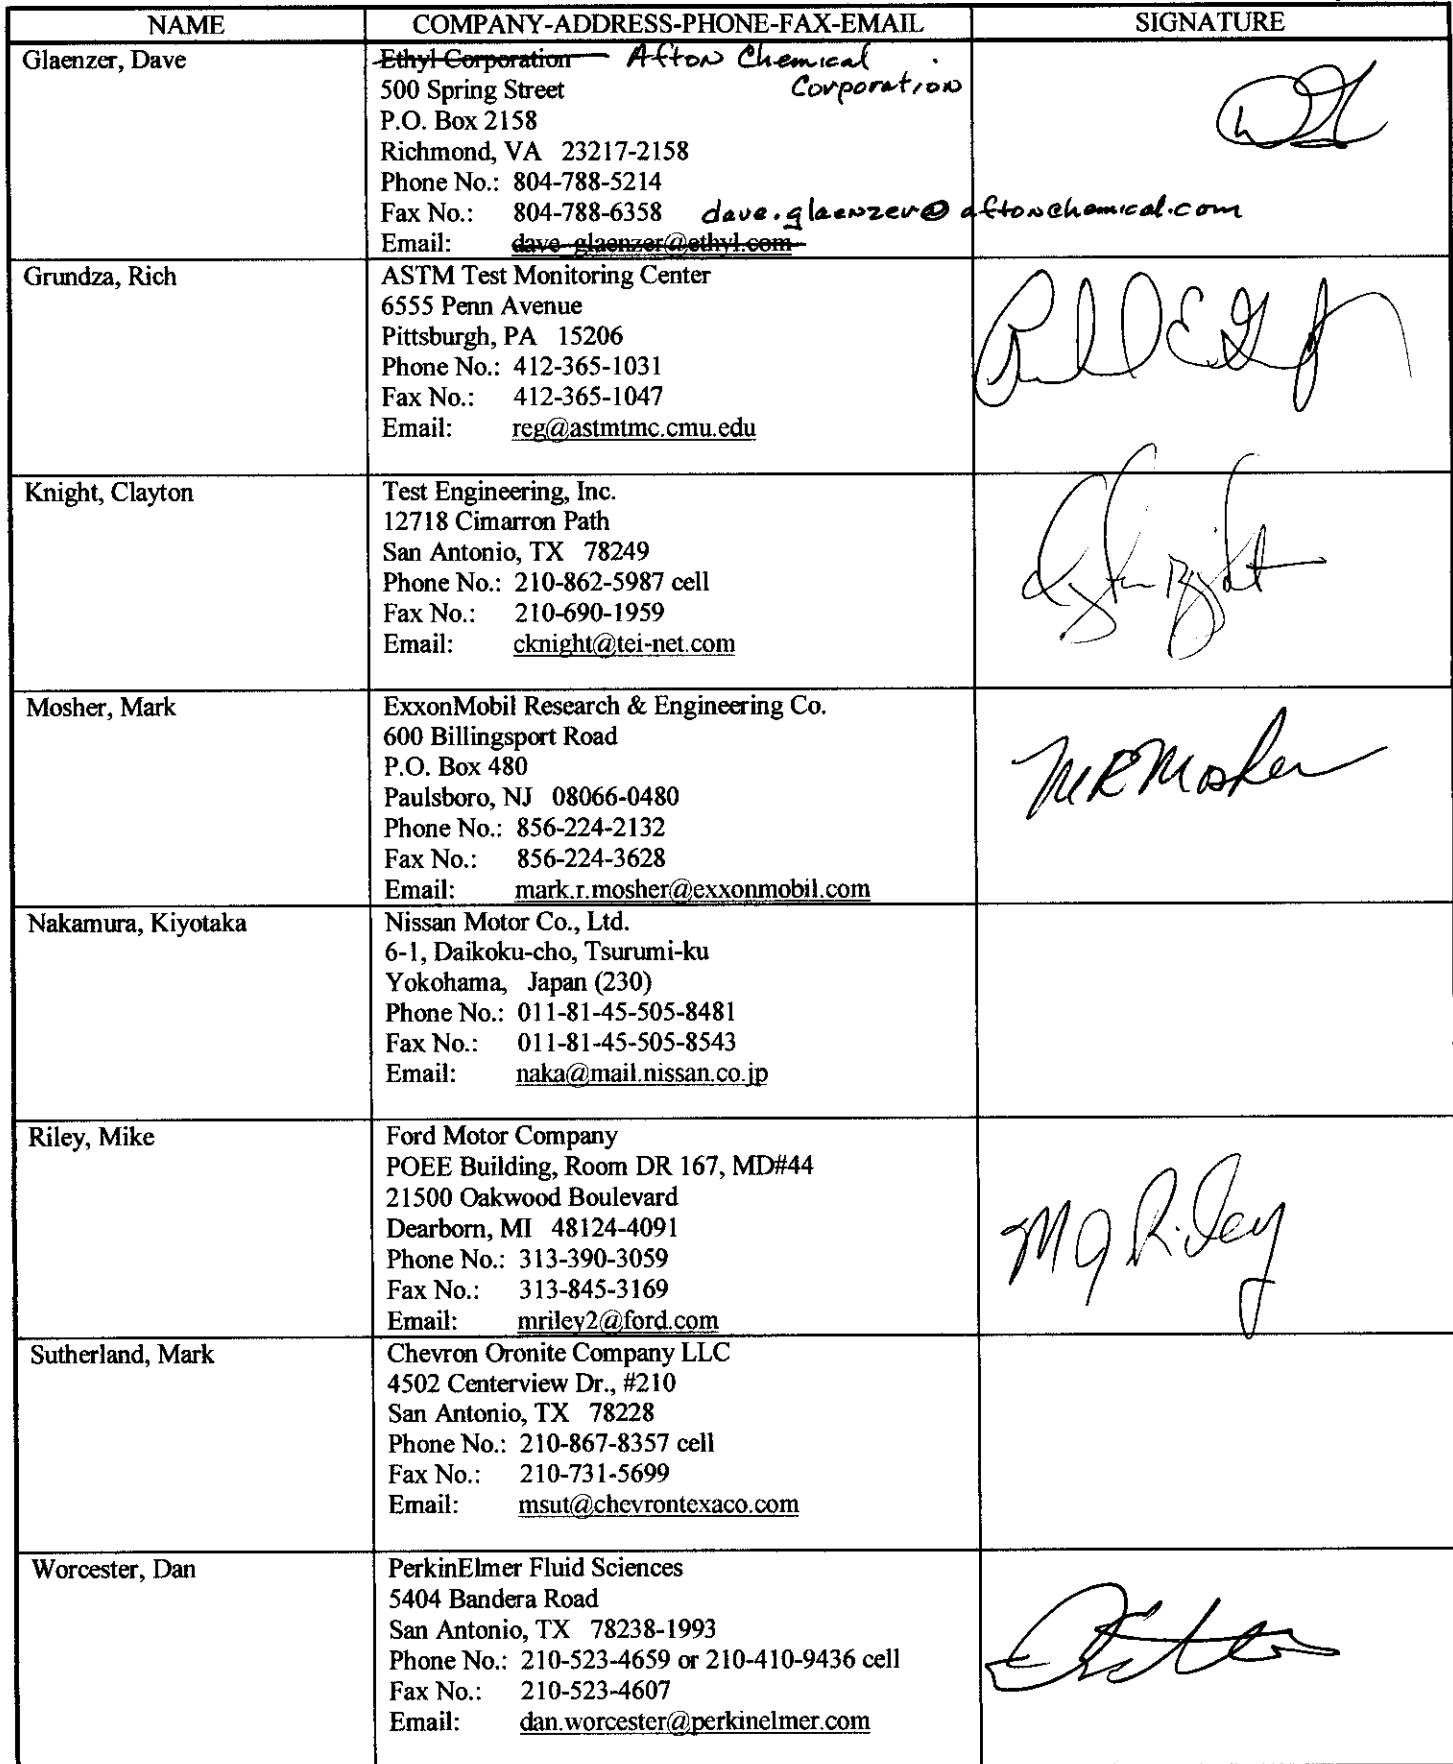 NAME COMPANY-ADDRESS-PHONE-FAX-EMAIL SIGNATURE
Glaenzer, Dave Ethyl Corporation Afton Chemical
500 Spring Street Corporation
P.O. Box 2158
Richmond, VA 23217-2158
Phone No.: 804-788-5214
Fax No.: 804-788-6358 dave.glaenzer@aftonchemical.com
Email: dave_glaenzer@ethyl.com
Grundza, Rich ASTM Test Monitoring Center
6555 Penn Avenue
Pittsburgh, PA 15206
Phone No.: 412-365-1031
Fax No.: 412-365-1047
Email: reg@astmtmc.cmu.edu
Knight, Clayton Test Engineering, Inc.
12718 Cimarron Path
San Antonio, TX 78249
Phone No.: 210-862-5987 cell
Fax No.: 210-690-1959
Email: cknight@tei-net.com
Mosher, Mark ExxonMobil Research & Engineering Co.
600 Billingsport Road
P.O. Box 480
MRMosher
Paulsboro, NJ 08066-0480
Phone No.: 856-224-2132
Fax No.: 856-224-3628
Email: mark.r.mosher@exxonmobil.com
Nakamura, Kiyotaka Nissan Motor Co., Ltd.
6-1, Daikoku-cho, Tsurumi-ku
Yokohama, Japan (230)
Phone No.: 011-81-45-505-8481
Fax No.: 011-81-45-505-8543
Email: naka@mail.nissan.co.jp
Riley, Mike Ford Motor Company
POEE Building, Room DR 167, MD#44
21500 Oakwood Boulevard
Dearborn, MI 48124-4091
MJ Riley
Phone No.: 313-390-3059
Fax No.: 313-845-3169
Email: mriley2@ford.com
Sutherland, Mark Chevron Oronite Company LLC
4502 Centerview Dr., #210
San Antonio, TX 78228
Phone No.: 210-867-8357 cell
Fax No.: 210-731-5699
Email: msut@chevrontexaco.com
Worcester, Dan PerkinElmer Fluid Sciences
5404 Bandera Road
San Antonio, TX 78238-1993
Phone No.: 210-523-4659 or 210-410-9436 cell
Fax No.: 210-523-4607
Email: dan.worcester@perkinelmer.com